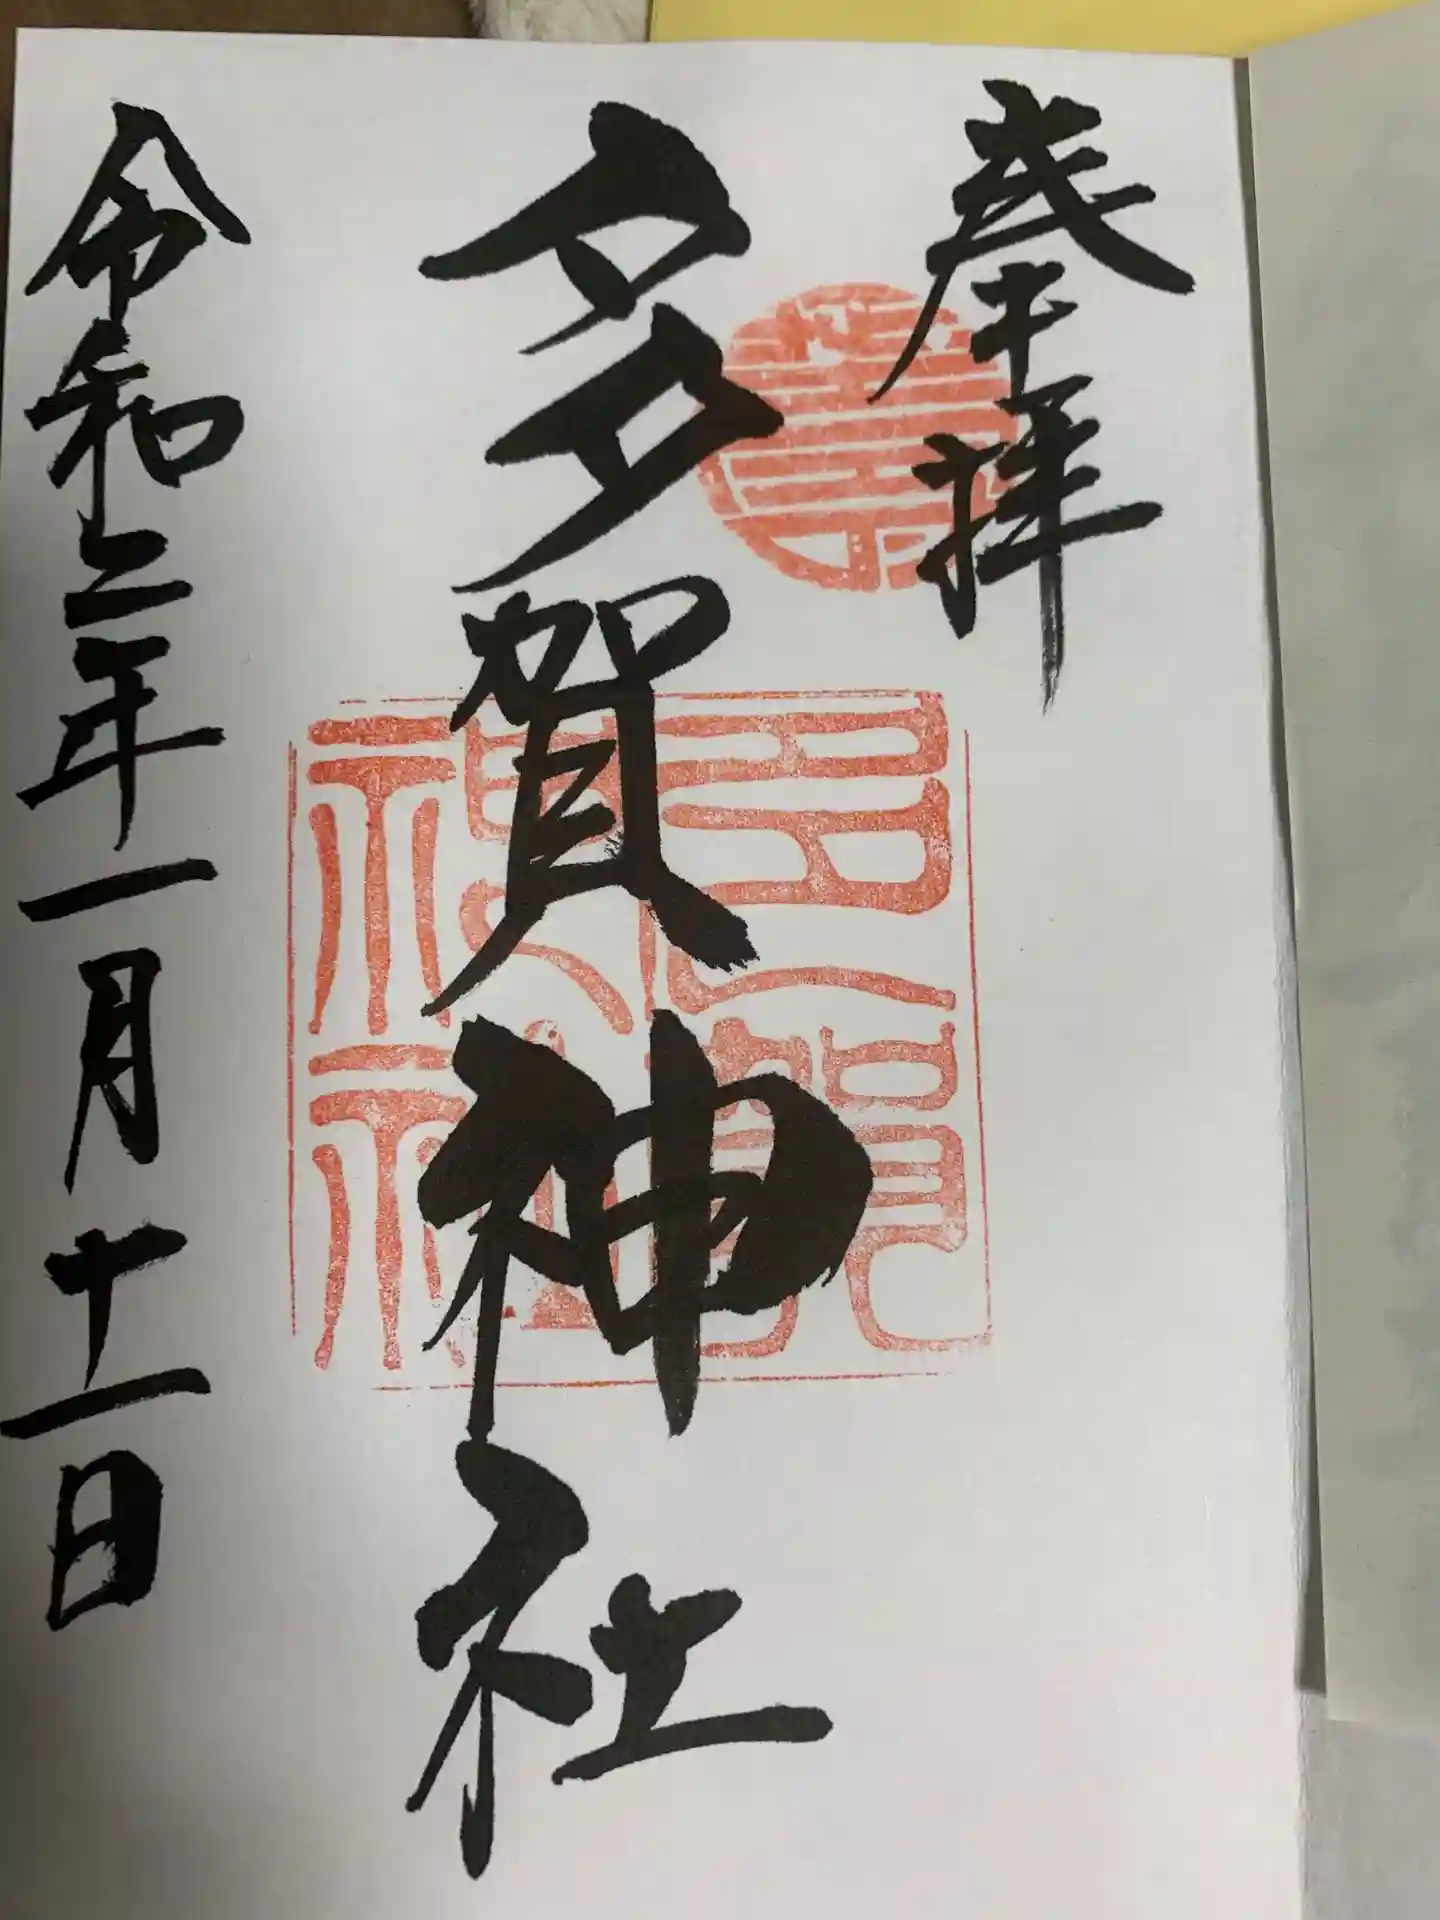 奉拝
多賀神社
令和二年一月十一日
多賀
神社